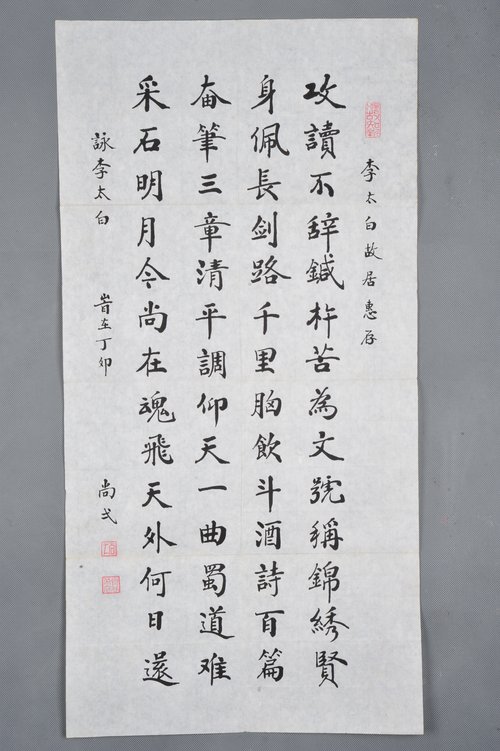 李太白故居惠存
攻讀不辞鍼杵苦為文號稱錦綉賢
身佩長剑路千里胸飲斗酒詩百篇
奋筆三章清平調仰天一曲蜀道难
采石明月今尚在魂飛天外何日還
詠李太白
旹在丁卯
尚弋